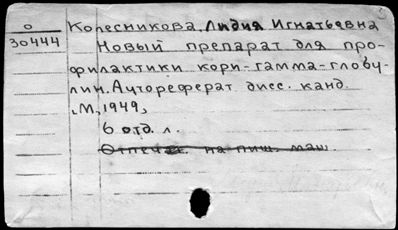 О
30444
Колесникова, Лидия Игнатьевна
Новый препарат для про-
филактики кори-гамма-глобу-
лин. Автореферат дисс. канд.
М., 1949,
6 отд. л.
Отпечат. на пиш. маш.